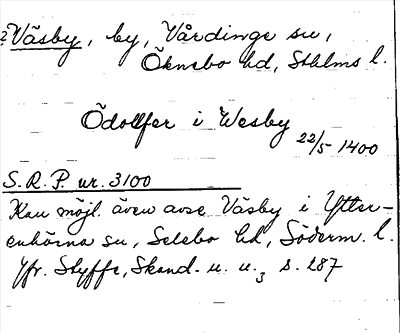 ? Väsby, by, Vårdinge sn,
Öknebo hd, Sthlms l.
Ödollfer i Wesby
22/5 1400
S.R.P. nr. 3100
Kan möjl. även avse Väsby i Ytter-
enhörna sn, Selebo hd, Söderm. l.
Jfr. Styffe, Skand. u. u.3 s. 287